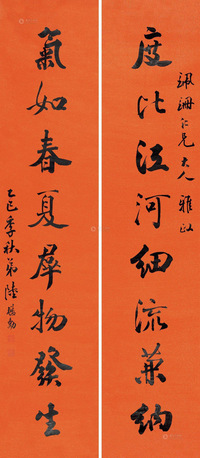 度比江河細流兼納
仁兄大人雅正
氣如春夏羣物發生
乙巳季秋弟陸